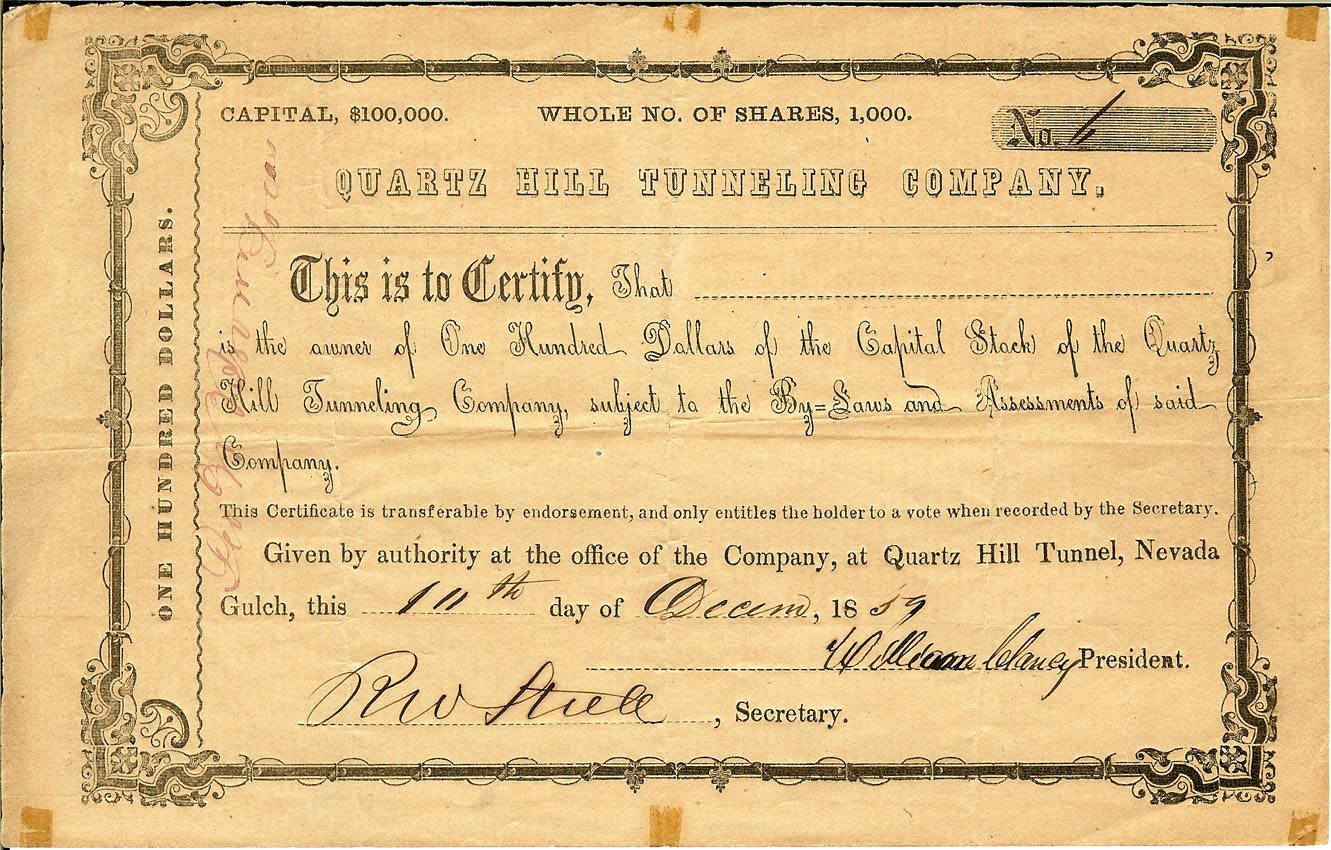 CAPITAL, $100,000. WHOLE NO. OF SHARES, 1,000. No. 6
QUARTZ HILL TUNNELING COMPANY.
This is to Certify, That
is the owner of One Hundred Dollars of the Capital Stock of the Quartz
Hill Tunneling Company, subject to the By=Laws and Assessments of said
Company.
This Certificate is transferable by endorsement, and only entitles the holder to a vote when recorded by the Secretary.
Given by authority at the office of the Company, at Quartz Hill Tunnel, Nevada
Gulch, this 10th day of Decem, 1859
William Clancy President.
R W Steele, Secretary.
ONE HUNDRED DOLLARS.